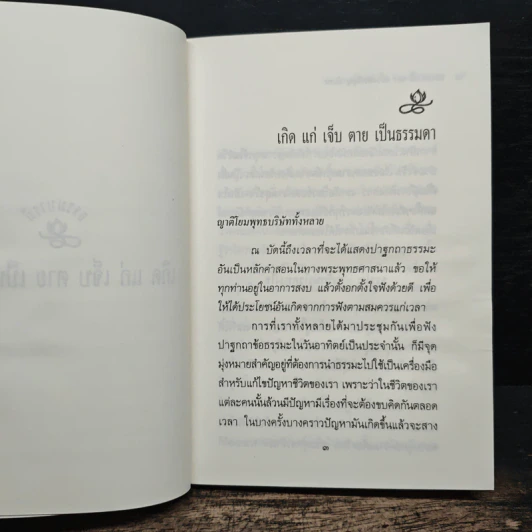 เกิด แก่ เจ็บ ตาย เป็นธรรมดา
ญาติโยมพุทธบริษัททั้งหลาย
ณ บัดนี้ถึงเวลาที่จะได้แสดงปาฐกถาธรรมะ
อันเป็นหลักคำสอนในทางพระพุทธศาสนาแล้ว ขอให้
ทุกท่านอยู่ในอาการสงบ แล้วตั้งอกตั้งใจฟังด้วยดี เพื่อ
ให้ได้ประโยชน์อันเกิดจากการฟังตามสมควรแก่เวลา
การที่เราทั้งหลายได้มาประชุมกันเพื่อฟัง
ปาฐกถาข้อธรรมะในวันอาทิตย์เป็นประจำนั้น ก็มีจุด
มุ่งหมายสำคัญอยู่ที่ต้องการนำธรรมะไปใช้เป็นเครื่องมือ
สำหรับแก้ไขปัญหาชีวิตของเรา เพราะว่าในชีวิตของเรา
แต่ละคนนั้นล้วนมีปัญหามีเรื่องที่จะต้องขบคิดกันตลอด
เวลา ในบางครั้งบางคราวปัญหามันเกิดขึ้นแล้วจะสาง
๓